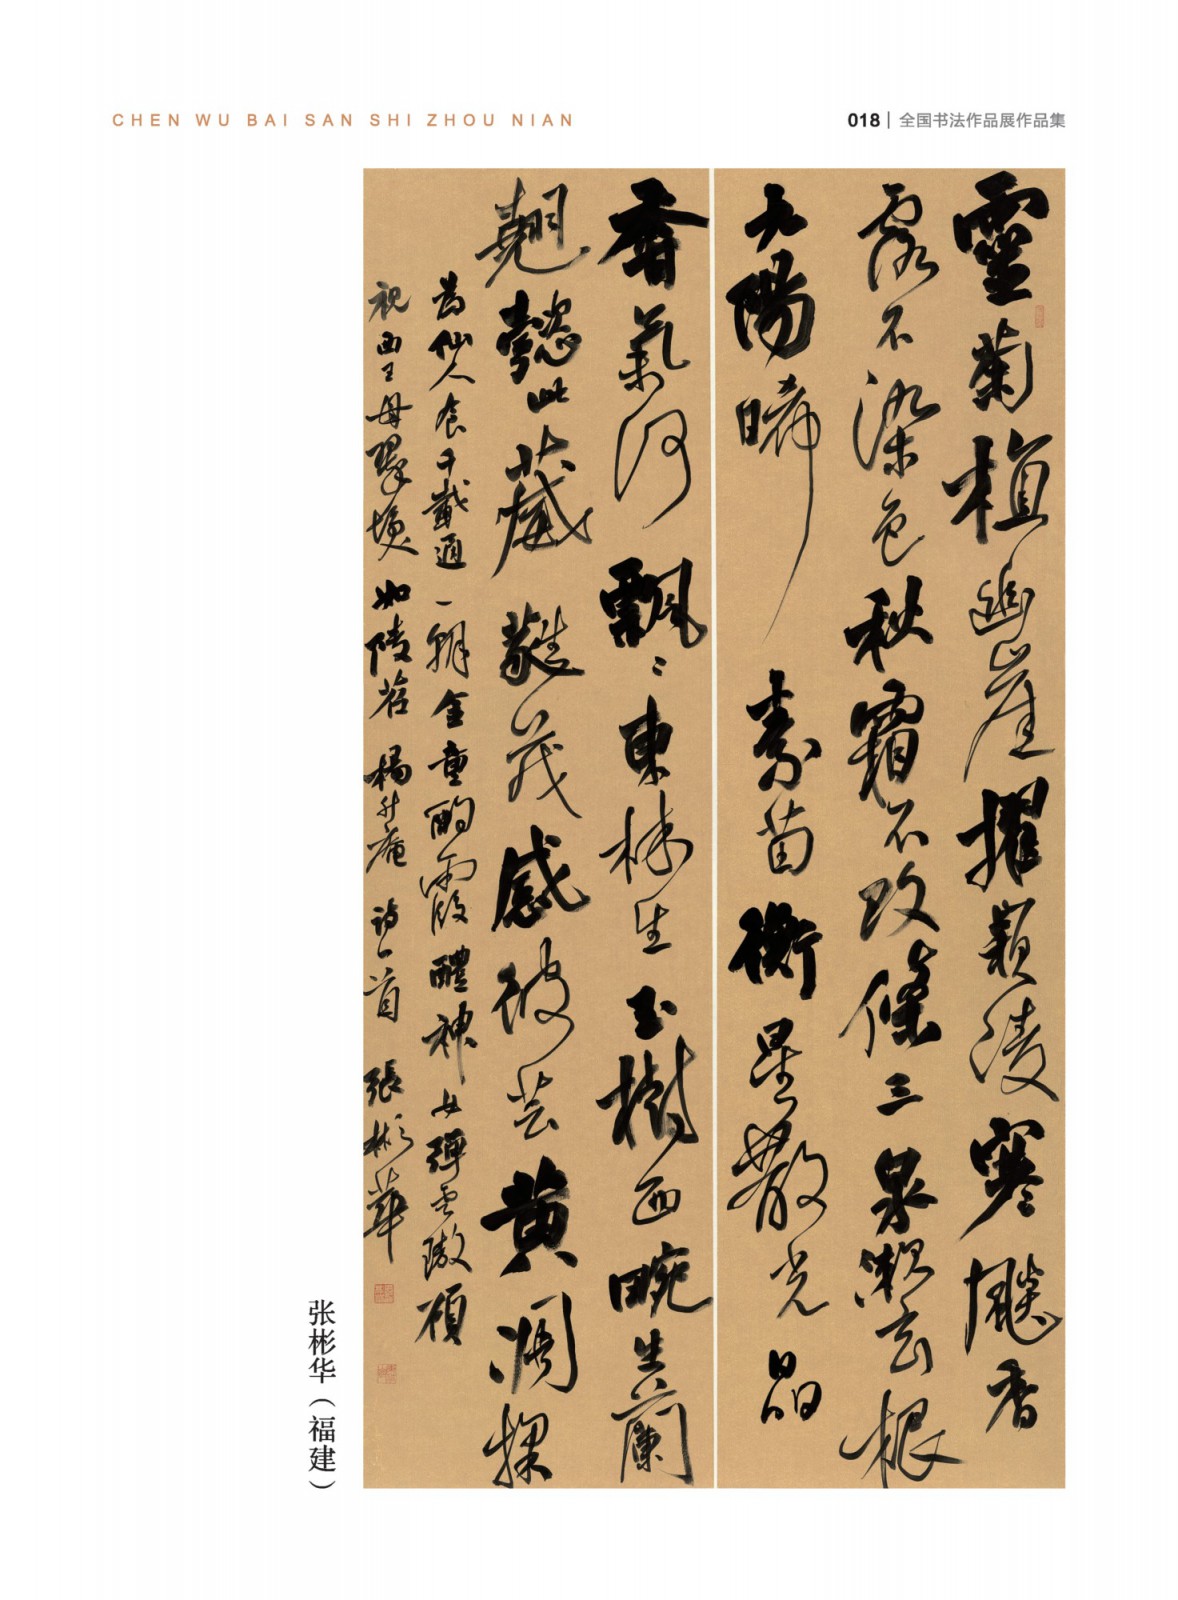 CHEN WU BAI SAN SHI ZHOU NIAN
018 | 全国书法作品展作品集
靈菊植幽崖擢穎凌寒飈香
露不染色秋霜不改條三泉漱玄根
九陽晞壽苗衡星散光晶
香氣何飄〻東株生玉樹西畹生蘭
翹懿此葳蕤茂感彼芸黄凋採
為仙人食千載通一朝金童酌霞醴神女彈雲璈願
祝西王母翠顏如陵苕 楊升庵詩一首 張彬華
张彬华（福建）